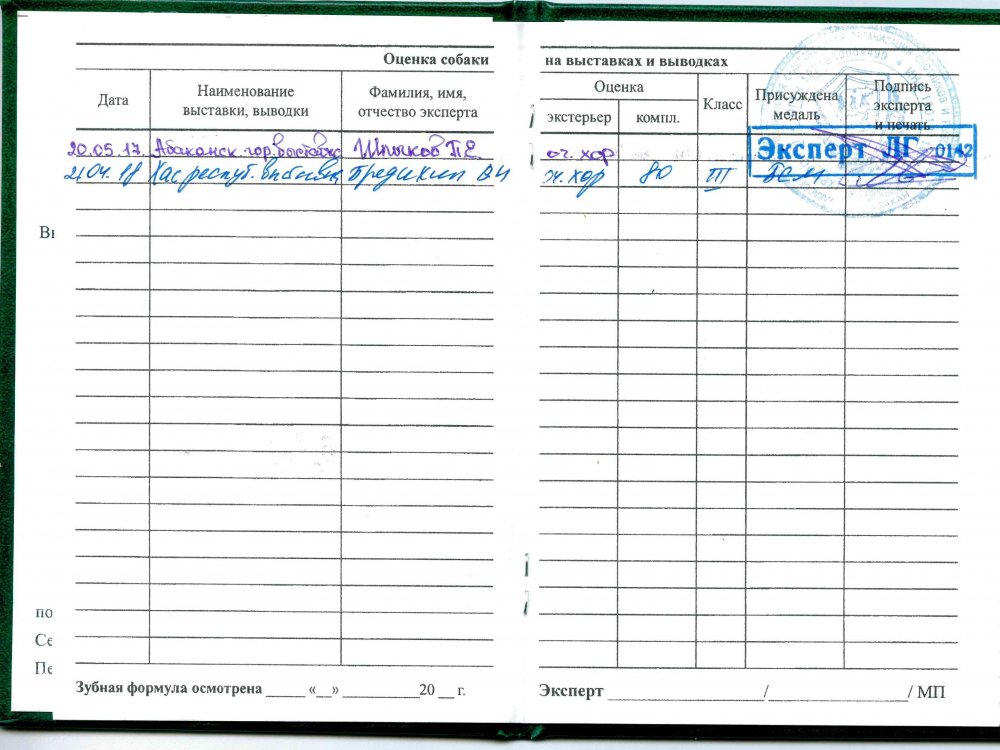 Оценка собаки на выставках и выводках
Дата
Наименование
выставки, выводки
Фамилия, имя,
отчество эксперта
Оценка
экстерьер
компл.
Класс
Присуждена
медаль
Подпись
эксперта
и печать
20.05.17. Абаканск. гор. выставка Шпыков П.Е. оч. хор
21.04.18 Хас респуб. оч. хор 80 III БСМ
Эксперт ЛГ 0142
Вы
по
Се
Пе
Зубная формула осмотрена _____ «__» __________20 __ г.
Эксперт ____________________/__________________/ МП